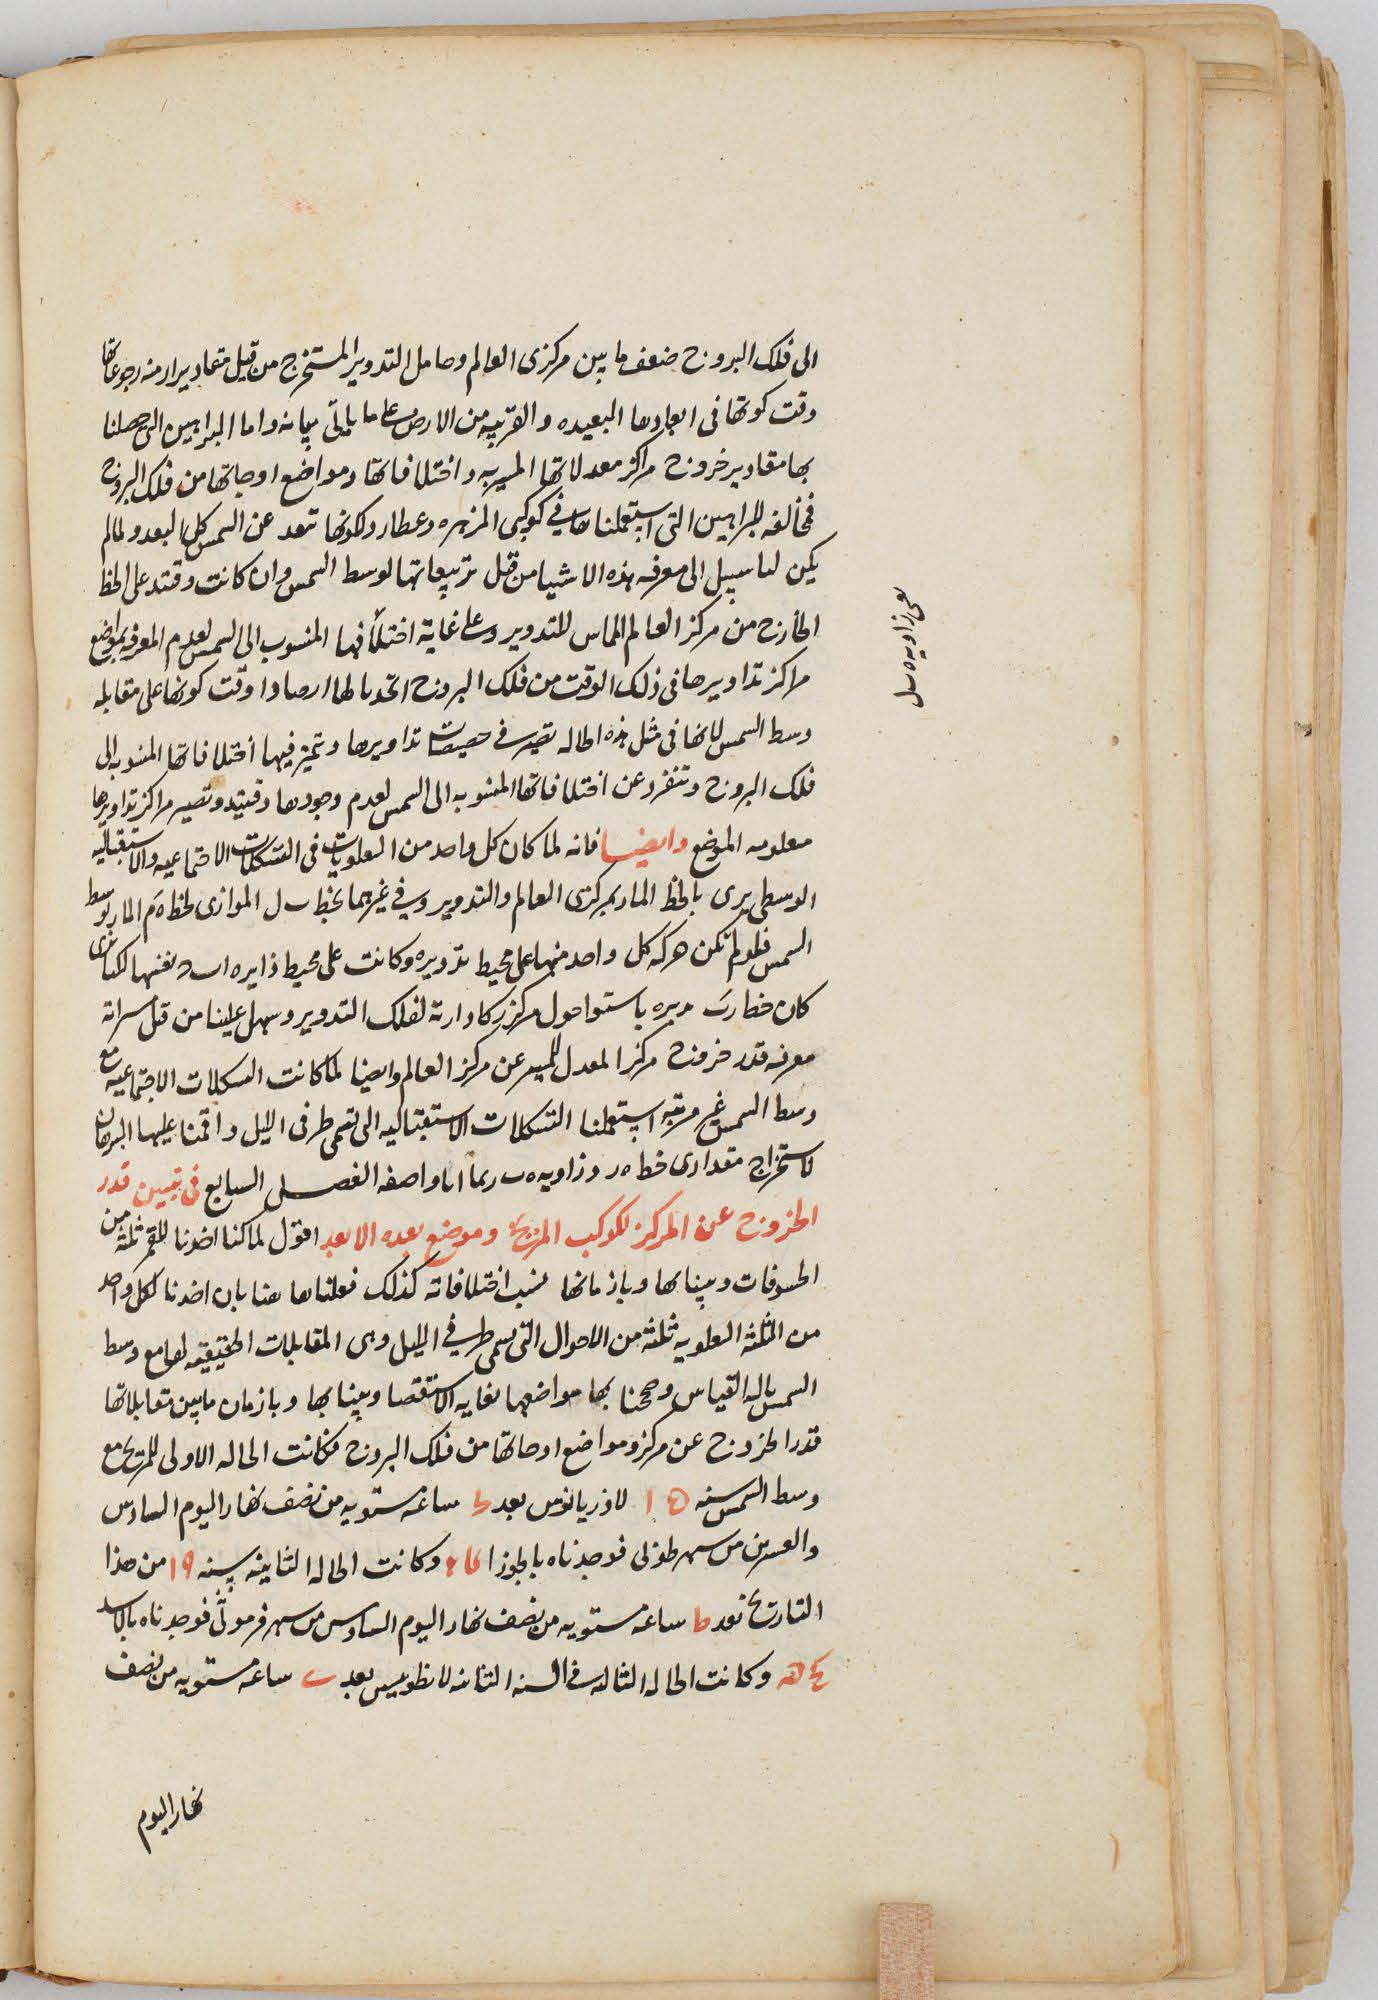 الى فلك البروج ضعف ما بين مركزى العالم وحامل التدوير المستخرج من قبل مقادير ازمنه رجوعاتها
وقت كونها فى ابعادها البعيده والقريبه من الارض على ما ياتى بيانه واما البراهين التى حصلنا
بها مقادير خروج مراكز معدلاتها المسيريه واختلافاتها ومواضع اوجاتها من فلك البروج
فمخالفه للبراهين التى استعملناها فى كوكبى الزهره وعطارد لكونها تبعد عن الشمس كل البعد ولما لم
يكن لنا سبيل الى معرفه هذه الاشيا من قبل تربيعاتها لوسط الشمس وان كانت وقتئد على الخط
الخارج من مركز العالم المماس للتدوير وعلى غاية اختلافها المنسوب الى الشمس لعدم المعرفه بمواضع
مراكز تداويرها فى ذلك الوقت من فلك البروج اتخدنا لها ارصادا وقت كونها على مقابله
وسط الشمس لانها فى مثل هذه الحاله تصير فى حضيضات تداويرها وتتميز فيها اختلافاتها المنسوبه الى
فلك البروج وتنفرد عن اختلافاتها المنسوبه الى الشمس لعدم وجودها وقتيئد وتصير مراكز تداويرها
معلومه الموضع وايضا فانه لما كان كل واحد من العلويات فى التشكلات الاجتماعيه والاستقباليه
الوسطى يرى بالخط المار بمركزى العالم والتدوير وفى غيرهما بخط ب ل الموازى لخط ه م المار بوسط
الشمس فلو لم تكن حركه كل واحد منها على محيط تدويره وكانت على محيط دايره ا ب د نفسها لكنا نرى
كان خطا ر ب مديره باستوا حول مركز ر كادارته لفلك التدوير وسهل علينا من قبل
معرفه قدر خروج مركز المعدل للمسير عن مركز العالم وايضا لما كانت التشكلات الاجتماعيه مع
وسط الشمس غير مرئيه استعملنا التشكلات الاستقباليه التى تسمى طرفى الليل واقمنا عليها البرهان
لاستخراج مقدارى خط ه ر وزاويه ه ب ر بما انا واصفه الفصل السابع فى تبيين قدر
الخروج عن المركز لكوكب المريخ وموضع بعده الابعد اقول لما كنا اخدنا للقمر ثلثه من
الخسوفات وبينا بها وبازمانها نسب اختلافاته كذلك فعلنا ها هنا بان اخدنا لكل واحد
من الثلثه العلويه ثلثه من الاحوال التى تسمى طرفى الليل وهى المقابلات الحقيقيه لها مع وسط
الشمس باله القياس وصححنا بها مواضعها بغايه الاستقصا وبينا بها وبازمان ما بين مقابلاتها
قدر الخروج عن مركز ومواضع اوجاتها من فلك البروج فكانت الحاله الاولى للمريخ مع
وسط الشمس سنه ١٥ لادريانوس بعد ساعه مستويه من نصف نهار اليوم السادس
والعشرين من شهر طوبى فوجدناه بالجوزا وكانت الحاله الثانيه سنه ١٩ من هذا
التاريخ بعد ط ساعه مستويه من نصف نهار اليوم السادس من شهر فرموثى فوجدناه بالاسد
وكانت الحاله الثالثه فى السنه الثانيه لانطونيس بعد ى ساعه مستويه من نصف
نهار اليوم
يعنى زاويه ه ب ل